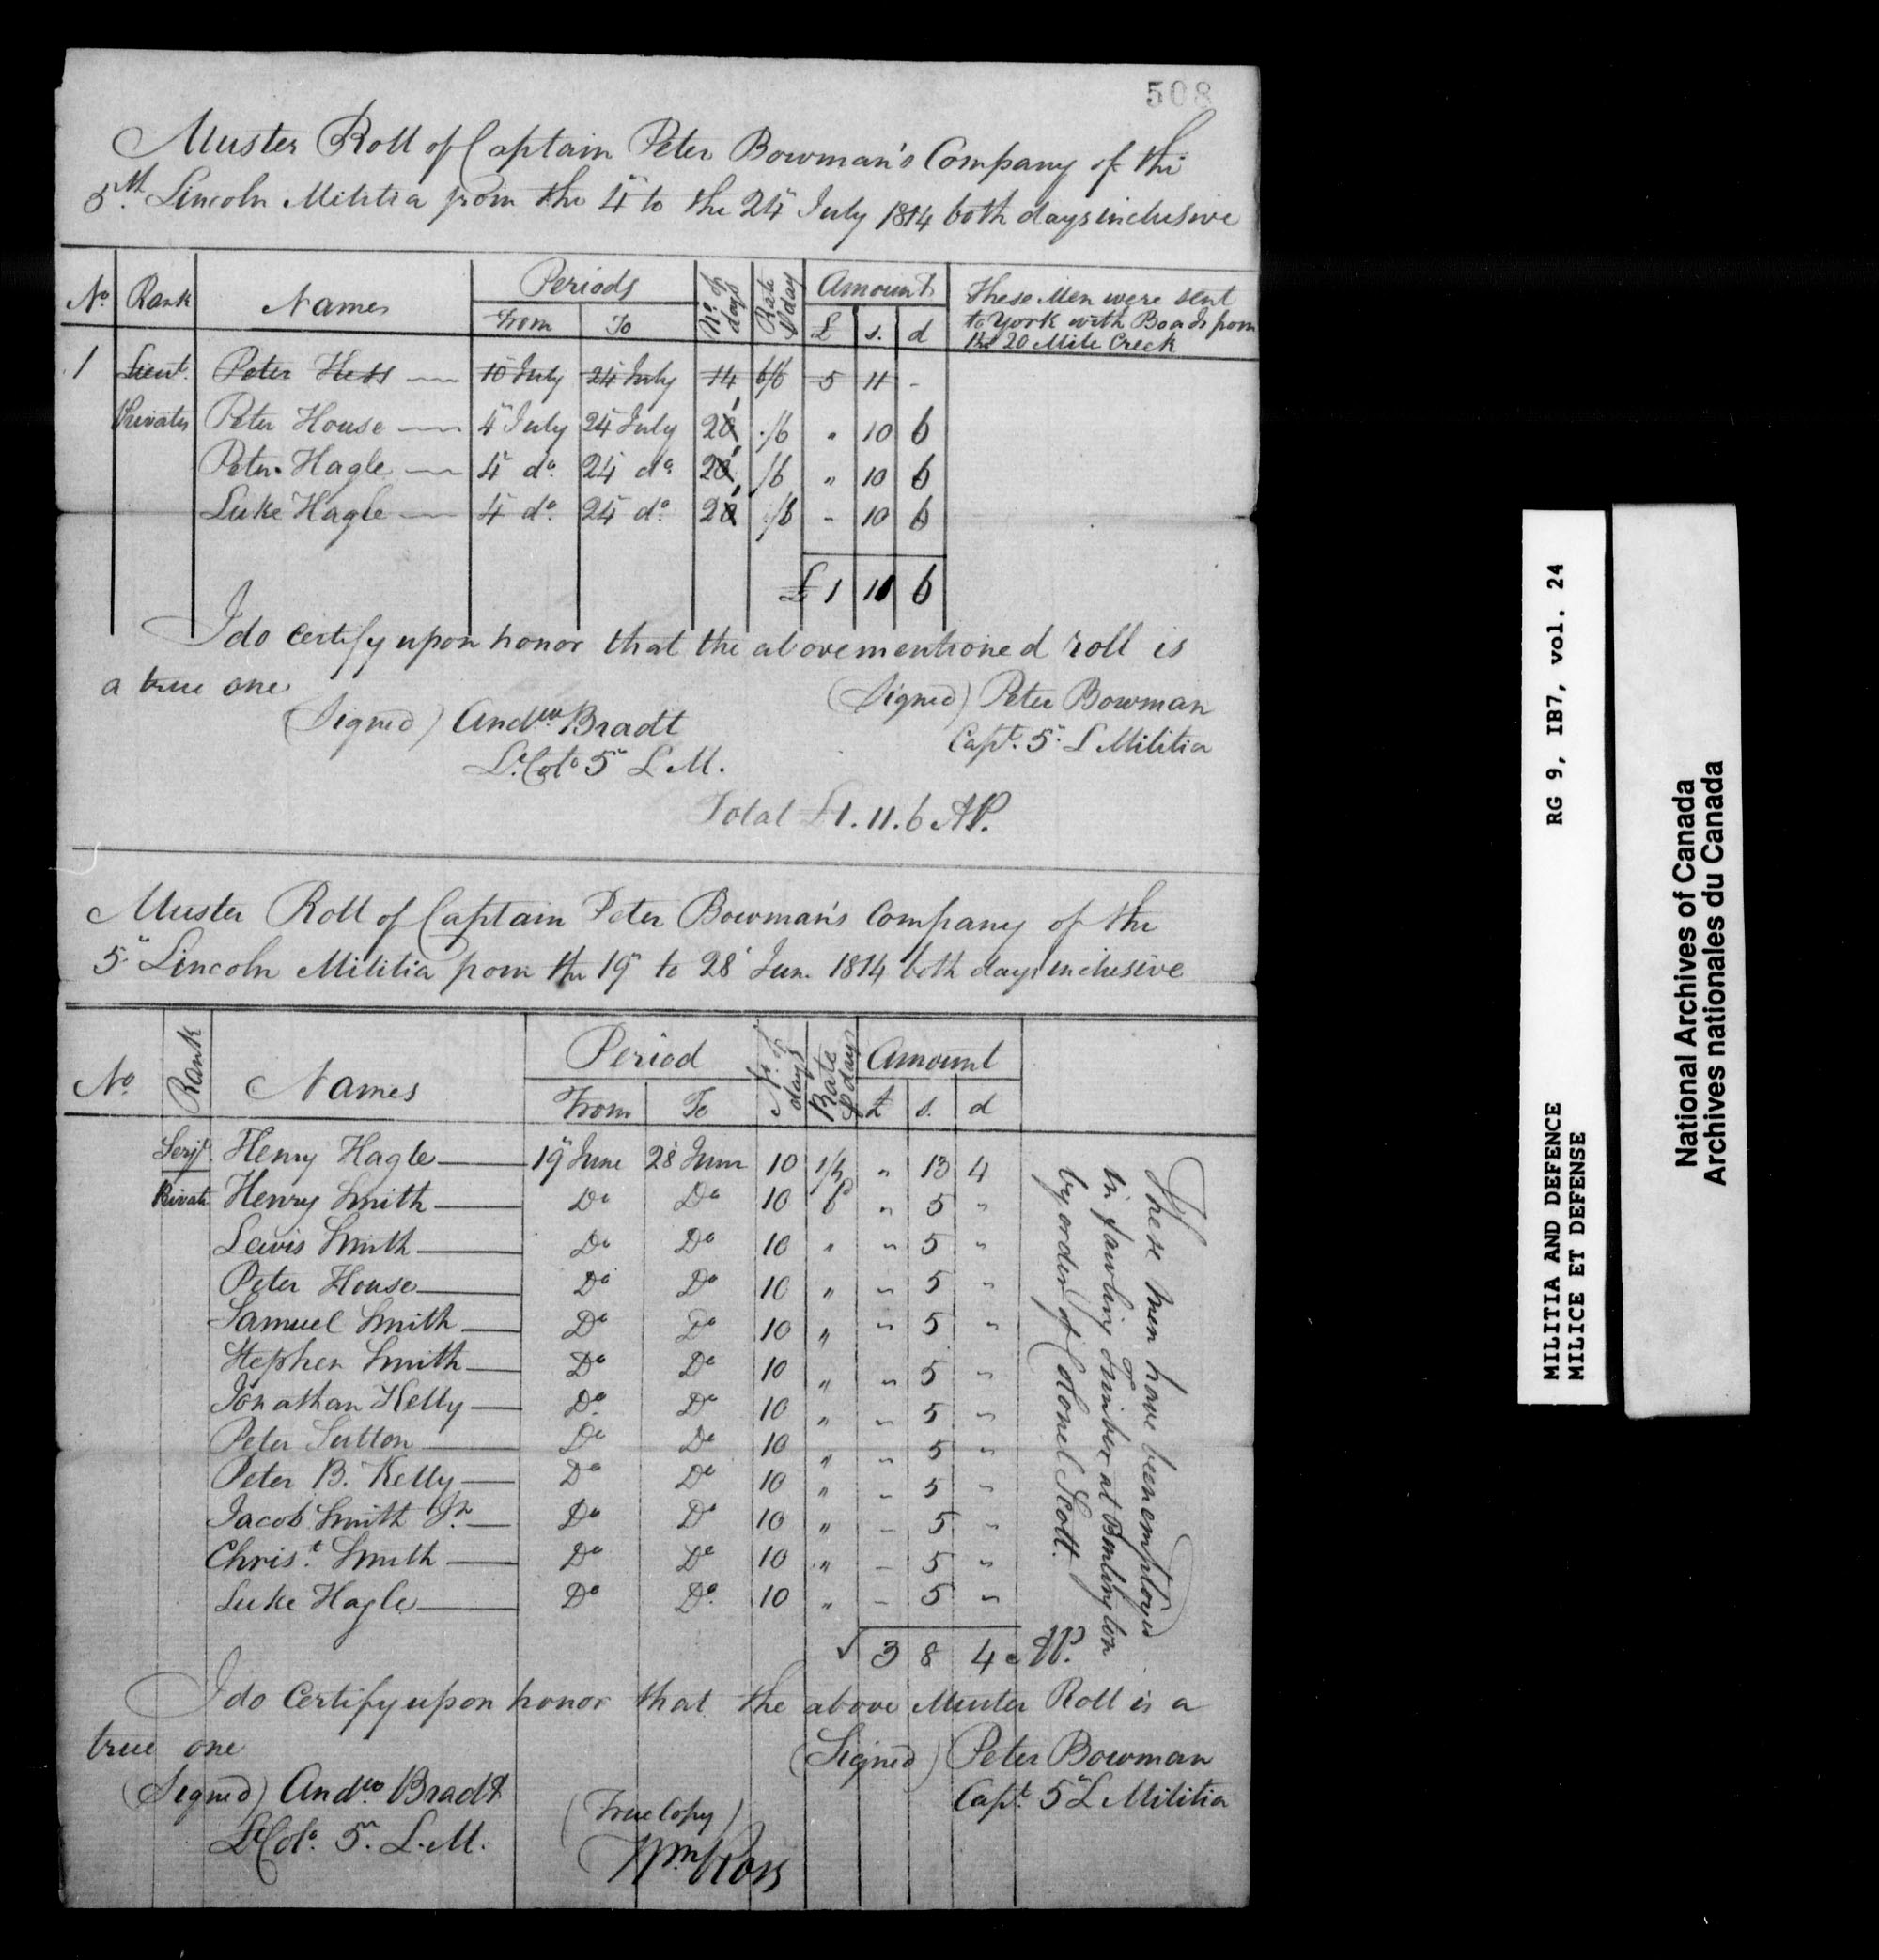 508
Muster Roll of Captain Peter Bowman's Company of the
5th Lincoln Militia from the 4 to the 24 July 1814 both days inclusive
No Rank Names Periods No of days Rate P day Amount These Men were sent
From To £ s. d to York with Boads from
the 20 Mile Creek
1 Lieut. Peter Hess 10 July 24 July 14 6/6 5 11 -
Privates Peter House 4 July 24 July 21 ./6 " 10 6
Peter Hagle 4 do. 24 do. 21 /6 " 10 6
Luke Hagle 4 do. 24 do. 21 ./6 - 10 6
£ 1 11 6
I do Certify upon honor that the abovementioned roll is
a true one
(Signed) Peter Bowman
Capt. 5 L Militia
(Signed) Andw Bradt
Lt Colo 5 L M.
Total £1.11.6 AP.
Muster Roll of Captain Peter Bowman's Company of the
5 Lincoln Militia from the 19 to 28 June 1814 both days inclusive
No Rank Names Period No. of days Rate P day Amount
From To £ s. d
Serjt. Henry Hagle 19 June 28 June 10 1/4 " 13 4
Private Henry Smith Do Do 10 6d " 5 "
Lewis Smith Do Do 10 " " 5 "
Peter House Do Do 10 " " 5 "
Samuel Smith Do Do 10 " " 5 "
Stephen Smith Do Do 10 " " 5 "
Jonathan Kelly Do Do 10 " " 5 "
Peter Sutton Do Do 10 " " 5 "
Peter B. Kelly Do Do 10 " " 5 "
Jacob Smith Jr. Do Do 10 " - 5 "
Christ. Smith Do Do 10 " - 5 "
Luke Hagle Do Do. 10 " - 5 "
3 8 4 AP.
These Men have been employed
in sawling Timber at Burlington
by order of Colonel Scott.
I do Certify upon honor that the above Muster Roll is a
true one
(Signed) Peter Bowman
Capt. 5 L Militia
(Signed) Andw Bradt
Lt Colo. 5 L.M.
(True Copy)
Wm Ross
MILITIA AND DEFENCE RG 9, IB7, vol. 24
MILICE ET DEFENSE
National Archives of Canada
Archives nationales du Canada